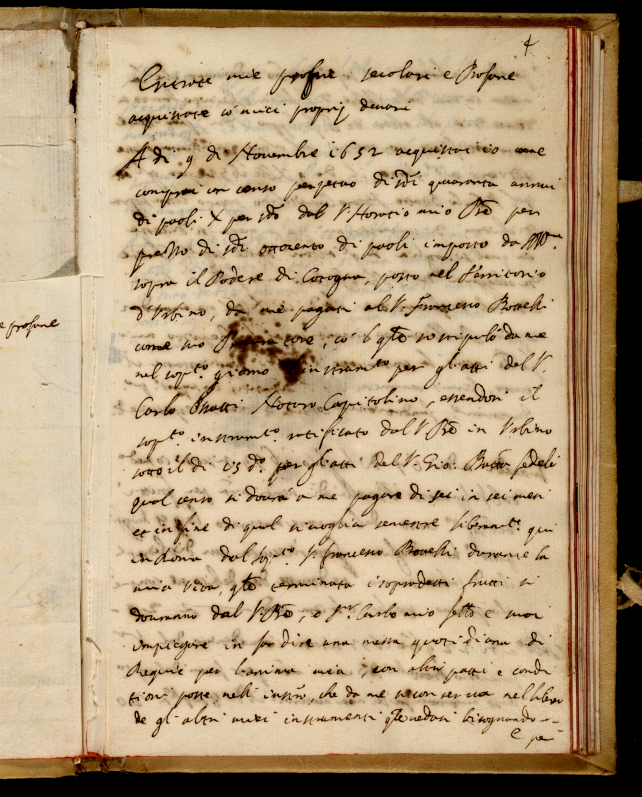 4
Entrate mie secolari e Profane
acquistate cò miei proprij denari
A dì 9 di Novembre 1652 acquistai io come
comprai un censo perpetuo di sdi quaranta annui
di paoli X per sdo dal Sr Horatio mio per
prezzo di sdi ottocento di paoli imposto da
sopra il Podere di Cotogna, posto nel Territorio
d'Urbino, da me pagati al Sr Francesco
come suo Procuratore, cò
nel sopto giorno instrumto per gl'atti del Sr
Carlo Notaro Capitolino, essendosi il
sopto instrumto ratificato dal Sr in Urbino
sotto il dì 15 do per gl'atti del Sr Gio: Batta fedeli
qual censo si dovrà a me pagare di sei in sei mesi
et in fine di qual si voglia semestre liberamte qui
in Roma dal sopto Sr Francesco durante la
mia vita, qle terminata i sopradetti frutti si
doveranno dal Sr o Sr Carlo mio fello e suoi
impiegare in far dire una messa quotidiana di
Requie per l'anima mia, con altri patti e condi
tioni poste nell' che da me si conserva nel libro
de gl'altri miei instrumenti vedasi bisognando
e per
e profane